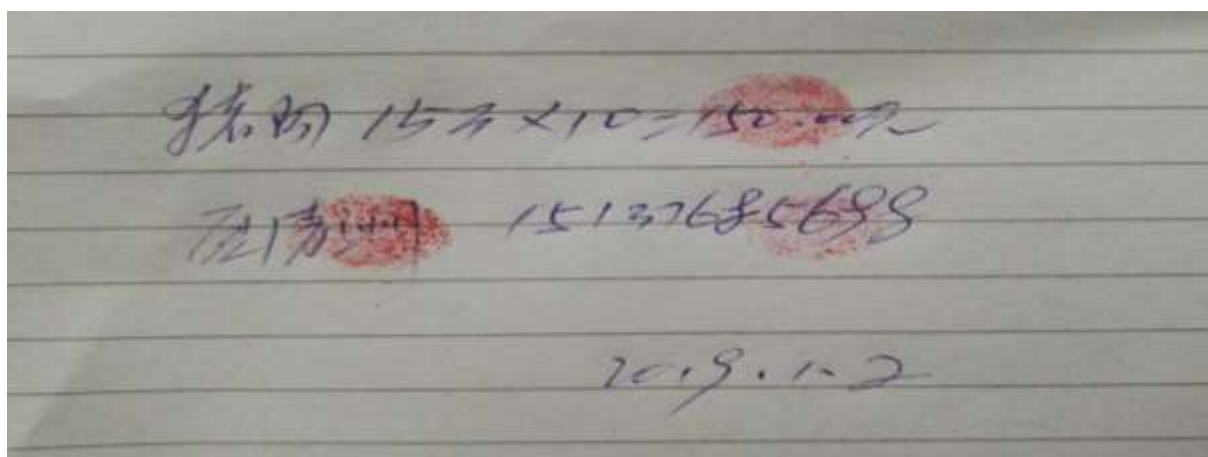 猪肉 15斤×10=150.00元
15137685698
2019.1.2